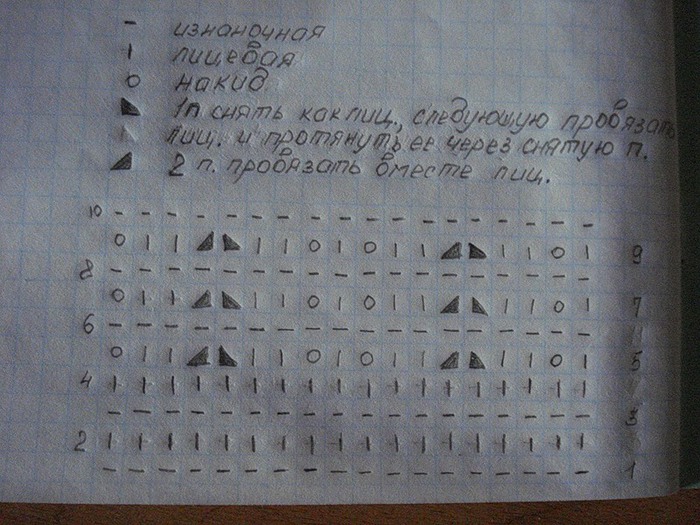 - изнаночная
ı лицевая
o накид
◣ 1п снять как лиц., следующую провязать
лиц. и протянуть ее через снятую п.
◢ 2 п. провязать вместе лиц.
10 - - - - - - - - - - - - - - - - -
o ı ı ◢ ◣ ı ı o ı o ı ı ◢ ◣ ı ı o ı 9
8 - - - - - - - - - - - - - - - - -
o ı ı ◢ ◣ ı ı o ı o ı ı ◢ ◣ ı ı o ı 7
6 - - - - - - - - - - - - - - - - -
o ı ı ◢ ◣ ı ı o ı o ı ı ◢ ◣ ı ı o ı 5
4 ı ı ı ı ı ı ı ı ı ı ı ı ı ı ı ı ı
- - - - - - - - - - - - - - - - - 3
2 ı ı ı ı ı ı ı ı ı ı ı ı ı ı ı ı ı
- - - - - - - - - - - - - - - - - 1